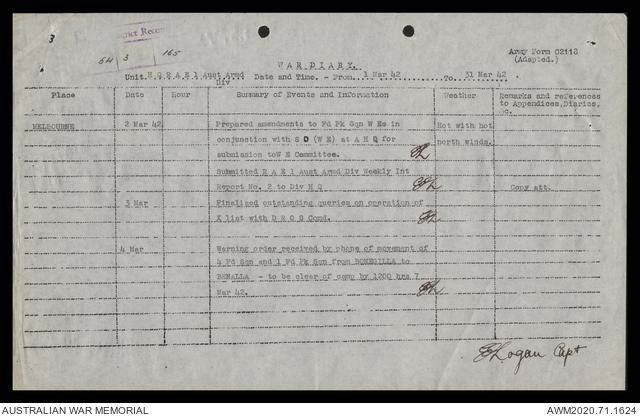 3
54 3 165
WAR DIARY.
Army Form C2118
(Adapted.)
Unit. H Q R A E 1 Aust Armd Div Date and Time. - From. 1 Mar 42 To 31 Mar 42
Place Date Hour Summary of Events and Information Weather Remarks and references to Appendices, Diaries, &c.
MELBOURNE 2 Mar 42 Prepared amendments to Fd Pk Sqn W Es in Hot with hot
conjunction with S D (W E) at A H Q for north winds.
submission toW E Committee.
Submitted R A E 1 Aust Armd Div Weekly Int
Report No. 2 to Div H Q Copy att.
3 Mar Finalized outstanding queries on operation of
X list with D R O S Comd.
4 Mar Warning order received by phone of movement of
4 Fd Sqn and 1 Fd Pk Sqn from BONEGILLA to
BENALLA - to be clear of camp by 1200 hrs 7
Mar 42.
Logan Capt
AUSTRALIAN WAR MEMORIAL AWM2020.71.1624